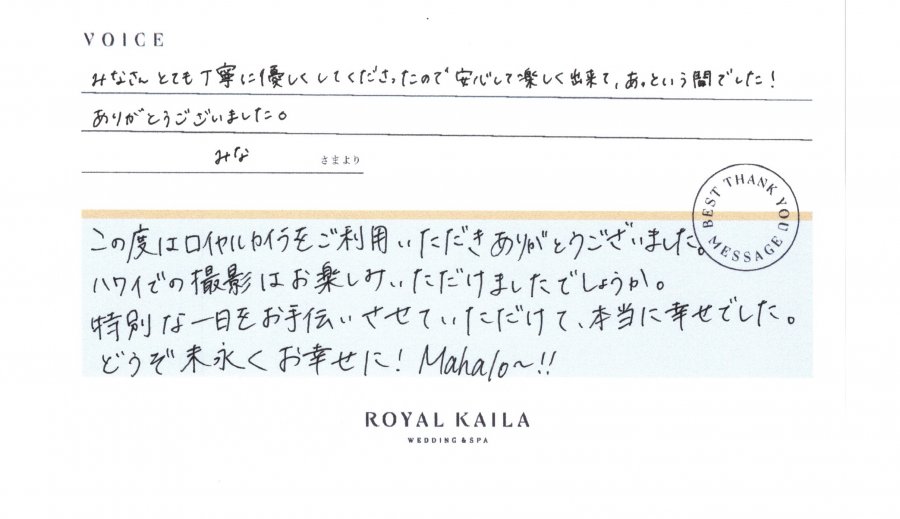 VOICE
みなさんとても丁寧に優しくしてくださったので安心して楽しく出来て、あっという間でした!
ありがとうございました。
みな さまより
BEST THANK YOU MESSAGE
この度はロイヤルカイラをご利用いただきありがとうございました。
ハワイでの撮影はお楽しみいただけましたでしょうか。
特別な一日をお手伝いさせていただけて、本当に幸せでした。
どうぞ末永くお幸せに! Mahalo~!!
ROYAL KAILA
WEDDING & SPA